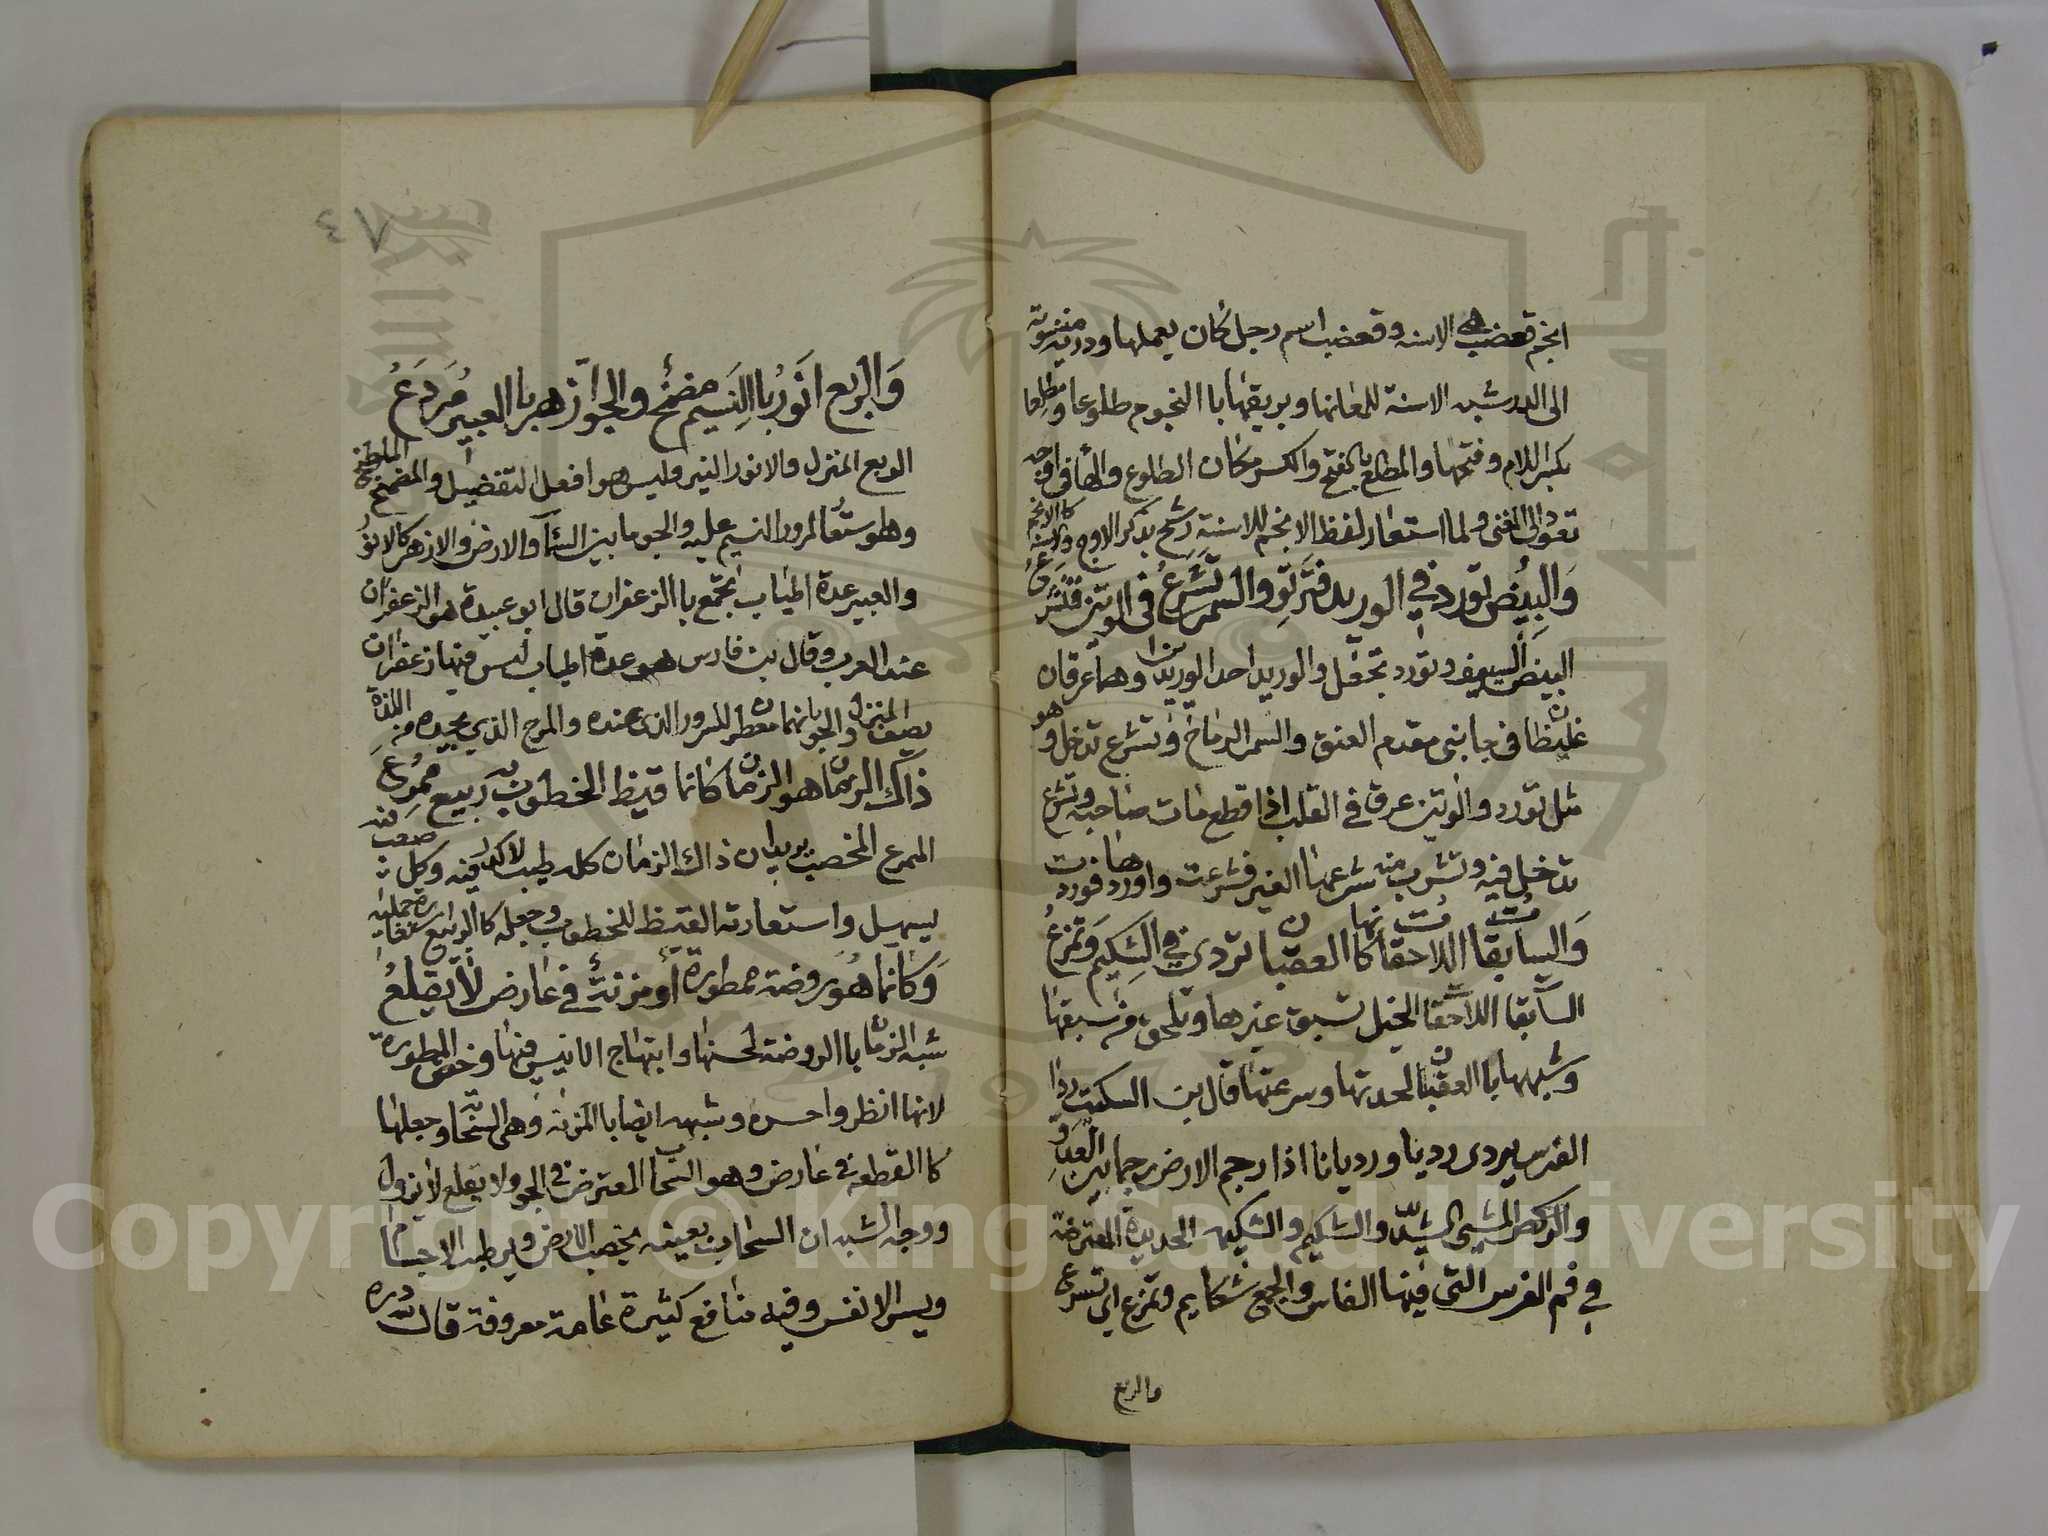 انجم قعضب هى الاسنه وقعضب اسم رجل كان يعملها ودرية منسوبة
الى الدر شبه الاسنة للمعانها وبريقها با النجوم طلوعا ومطلعا
بكسر اللام وفتحها والمطلع بالفتح والكسر مكان الطلوع والمأفى
تعود الى القنى ولما استعار لفظ الانجم للاسنة رشح بذكر الاوج
وَالبِيضُ تورد في الوريد فترتوِ والسمر تَشْرَعُ فى الوتين فتشرعُ
البيض السيوف وتورد تجعل والوريد احد الوريدين وهما عرقان
غليظان فى جانبى مقدم العنق والسمر الرماح وتشرع تدخل وهو
مثل تورد والوتين عرق فى القلب اذا قطع مات صاحبه وتشرع
تدخل فيه وتشرب منه شرعها الغير فشرعت واوردها فوردت
وَالسابقات اللاحقات كانها العقبان تردي في الشكيم وَتمزعُ
السابقات اللاحقات الخيل تسبق غيرها وتلحق من سبقها
وشبهها با العقبان لحدتها وسرعتها قال ابن السكيت ردا
الفرس يردى رديا ورديانا اذا رجم الارض رجما بين العدو
والركض المشى الشديد والشكيم والشكيمه الحديدة المعترضة
في فم الفرس التى فيها الفاس والجمع شكايم وتمزع اى تسرع
والربع
٤٧
وَالربع انَورُ با النَسيم مضمخٌ والجوا زهر با العبيرِ مُردعُ
الربع المنزل والانور النير وليس هو افعل التفضيل والمضمخ الملطخ
وهو ستعا لمرور النسيم عليه والجو ما بين السماء والارض والازهر كالانور
والعبير عدة اطياب تجمع با الزعفران قال ابو عبيدة هو الزعفران
عند العرب وقال بن فارس هو عدة اطياب ليس فيها زعفران
يصف المنزل والجو بانهما معطران للسرور الذى عنده والمرح الذي يجده من اللذة
ذاك الزمان هو الزمان كانما قيظ الخطوب به ربيع ممرعُ
الممرع المخصب يريد ان ذاك الزمان كله طيب لا كدر فيه وكل صعب فيه
يسهل واستعارته القيظ للخطوب وجعله كالربيع
وَكانما هُوَ روضة ممطورة أو مزنةٌ في عارض لا يقلعُ
شبه الزمان با الروضة لحسنها وابتهاج الانيس فيها وخص الممطورة
لانها انظر واحسن وشبهه ايضا با المزنة وهى السحابة وجعلها
كا القطعه فى عارض وهو السحاب المعترض فى الجو ولا يقلع لا يزول
ووجه الشبه ان السحاب بعينه يخصب الارض ويرطب الاجسام
ويسر الانفس وفيه منافع كثيرة عامة معروفة قال
Copyright © King Saud University